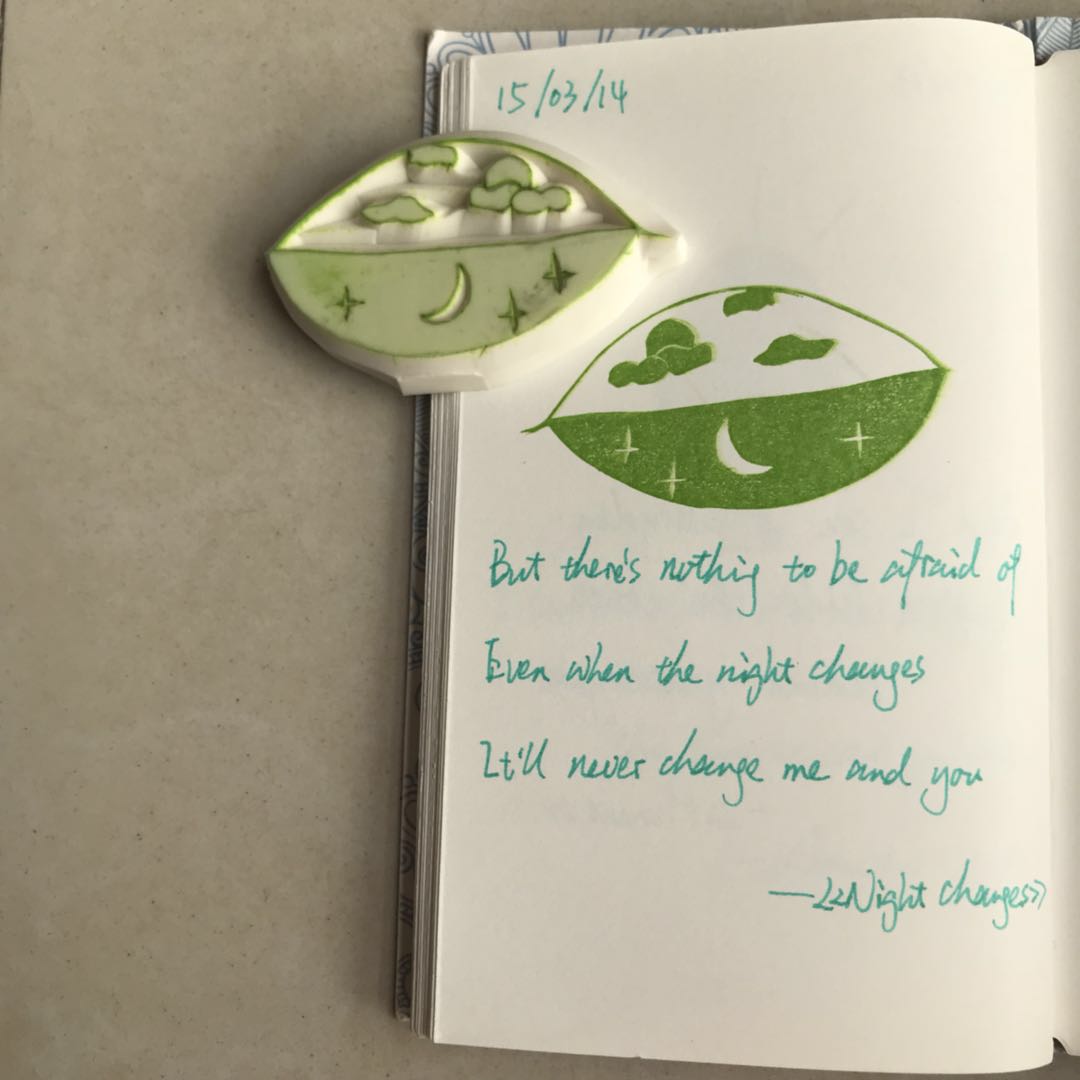 15/03/14
But there's nothing to be afraid of
Even when the night changes
It'll never change me and you
—<<Night changes>>